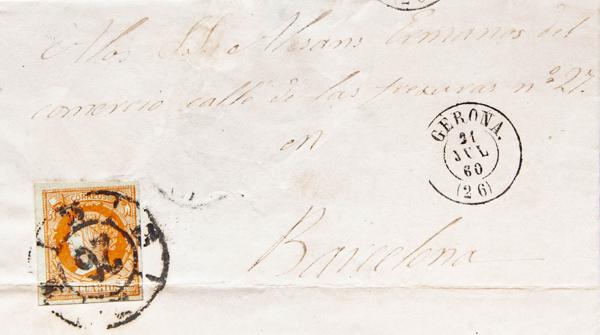 A los SS. Alesans Ermanos del
comercio calle de las freseuras nº 27.
en
Barcelona
GERONA.
21
JUL
60
(26)
CORREOS
26